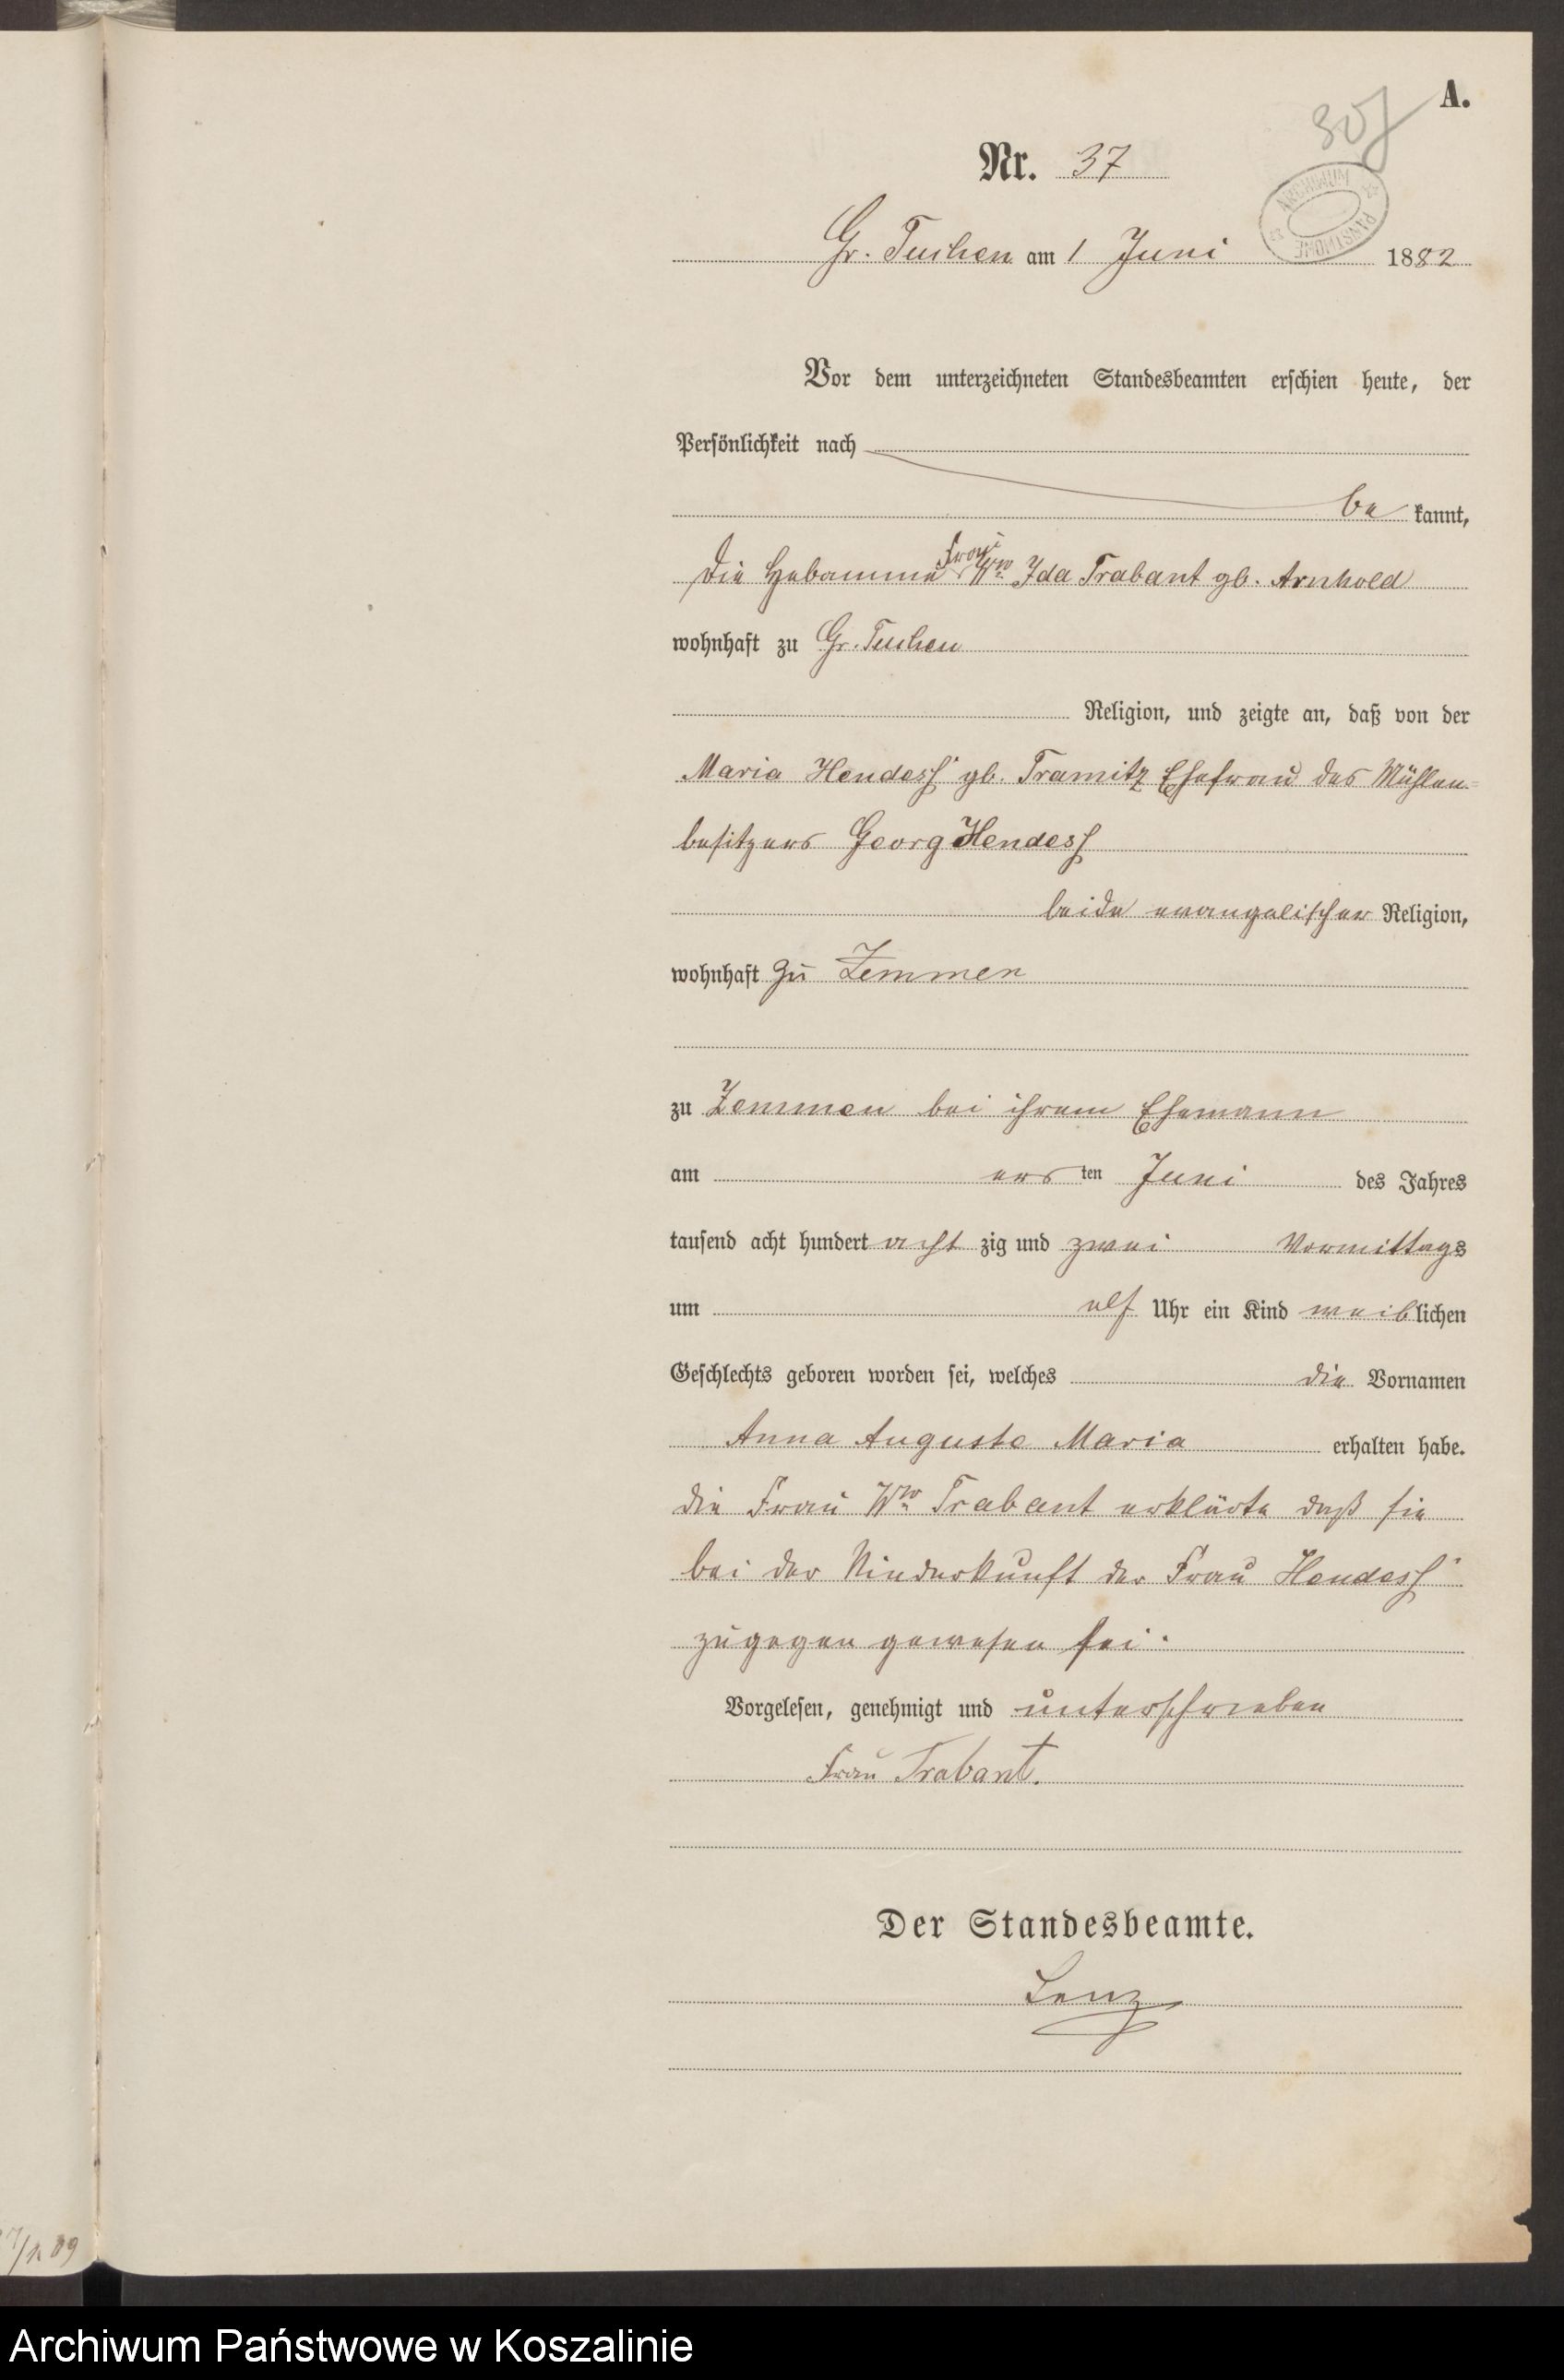 A.
Nr. 37
ARCHIWUM PAŃSTWOWE
Gr. Tuchen am 1 Juni 1882
Vor dem unterzeichneten Standesbeamten erschien heute, der
Persönlichkeit nach
be kannt,
Frau
die Hebamme Ww Ida Trabant gb. Arnhold
wohnhaft zu Gr. Tuchen
Religion, und zeigte an, daß von der
Maria Hendess gb. Tramitz Ehefrau des Mühlen-
besitzers Georg Hendess
beide evangelischer Religion,
wohnhaft zu Zemmen
zu Zemmen bei ihrem Ehemann
am ers ten Juni des Jahres
tausend acht hundert acht zig und zwei Vormittags
um elf Uhr ein Kind weiblichen
Geschlechts geboren worden sei, welches die Vornamen
Anna Auguste Maria erhalten habe.
die Frau Ww Trabant erklärte daß sie
bei der Niederkunft der Frau Hendess
zugegen gewesen sei.
Vorgelesen, genehmigt und unterschrieben
Frau Trabant.
Der Standesbeamte.
Lenz
Archiwum Państwowe w Koszalinie